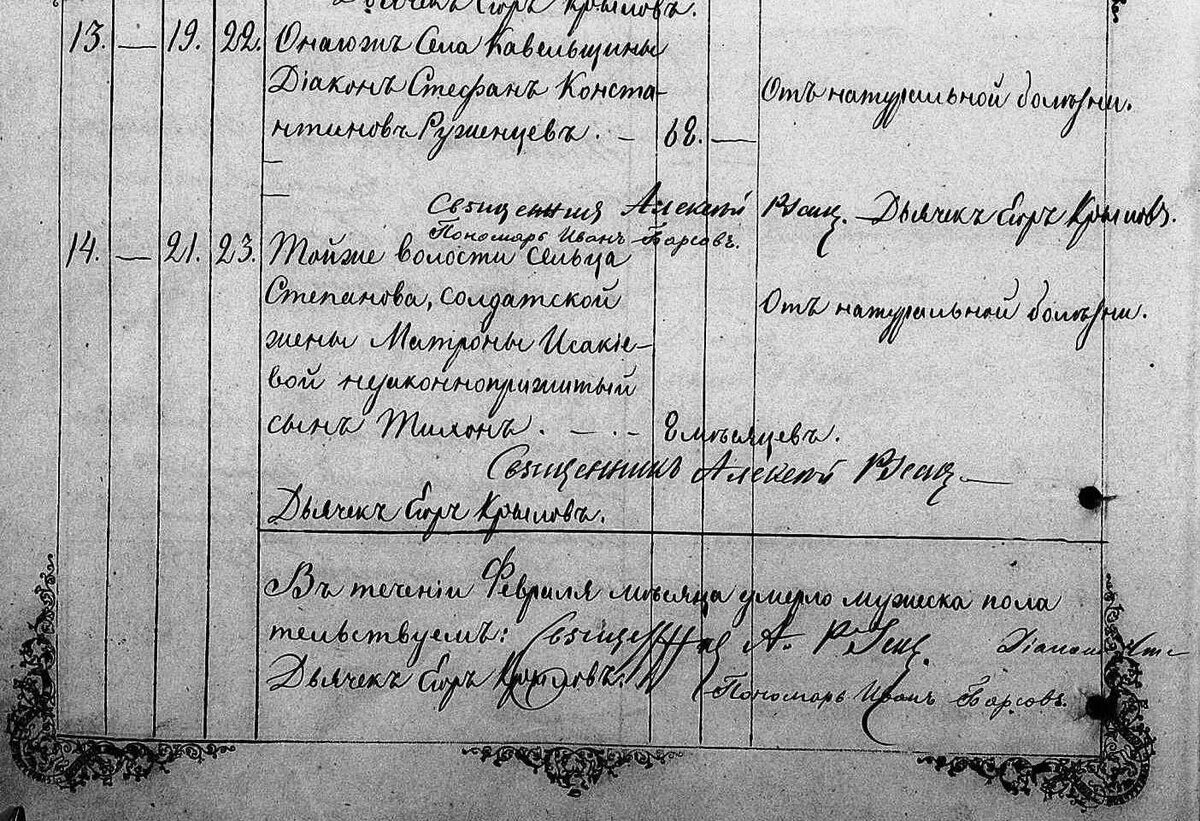 Дьячекъ Егоръ Крыловъ.
13. — 19. 22. Онагожъ Села Кавельщины
Діаконъ Стефанъ Конста-
нтиновъ Руженцевъ. — 68. — Отъ натуральной болѣзни.
Священник Алексѣй Дьячекъ Егоръ Крыловъ.
Пономарь Иванъ Барсовъ.
14. — 21. 23. Тойже волости сельца
Степанова, солдатской Отъ натуральной болѣзни.
жены Матроны Исакіе-
вой незаконноприжитый
сынъ Тихонъ. — . - 8 мѣсяцевъ.
Священникъ Алексѣй
Дьячекъ Егоръ Крыловъ.
Въ теченіи Февраля мѣсяца умерло мужеска пола
тельствуемъ: А. Діаконъ
Дьячекъ Егоръ Крыловъ. Пономарь Иванъ Барсовъ.